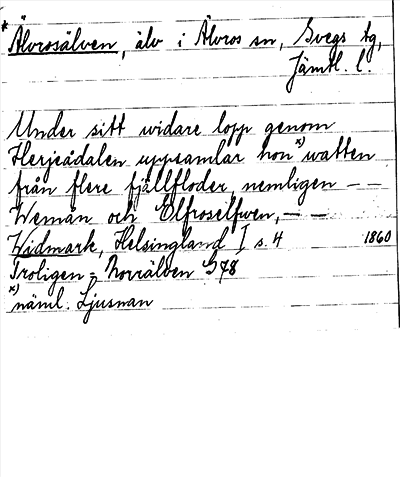 * Älvrosälven, älv i Älvros sn, Svegs tg,
Jämtl. l.
Under sitt widare lopp genom
Herjeådalen uppsamlar hon x) watten
från flere fjällfloder, nemligen – –
Wemån och Elfroselfwen, – –
Widmark, Helsingland I s. 4 1860
Troligen = Norrälven G78
x) näml. Ljusnan